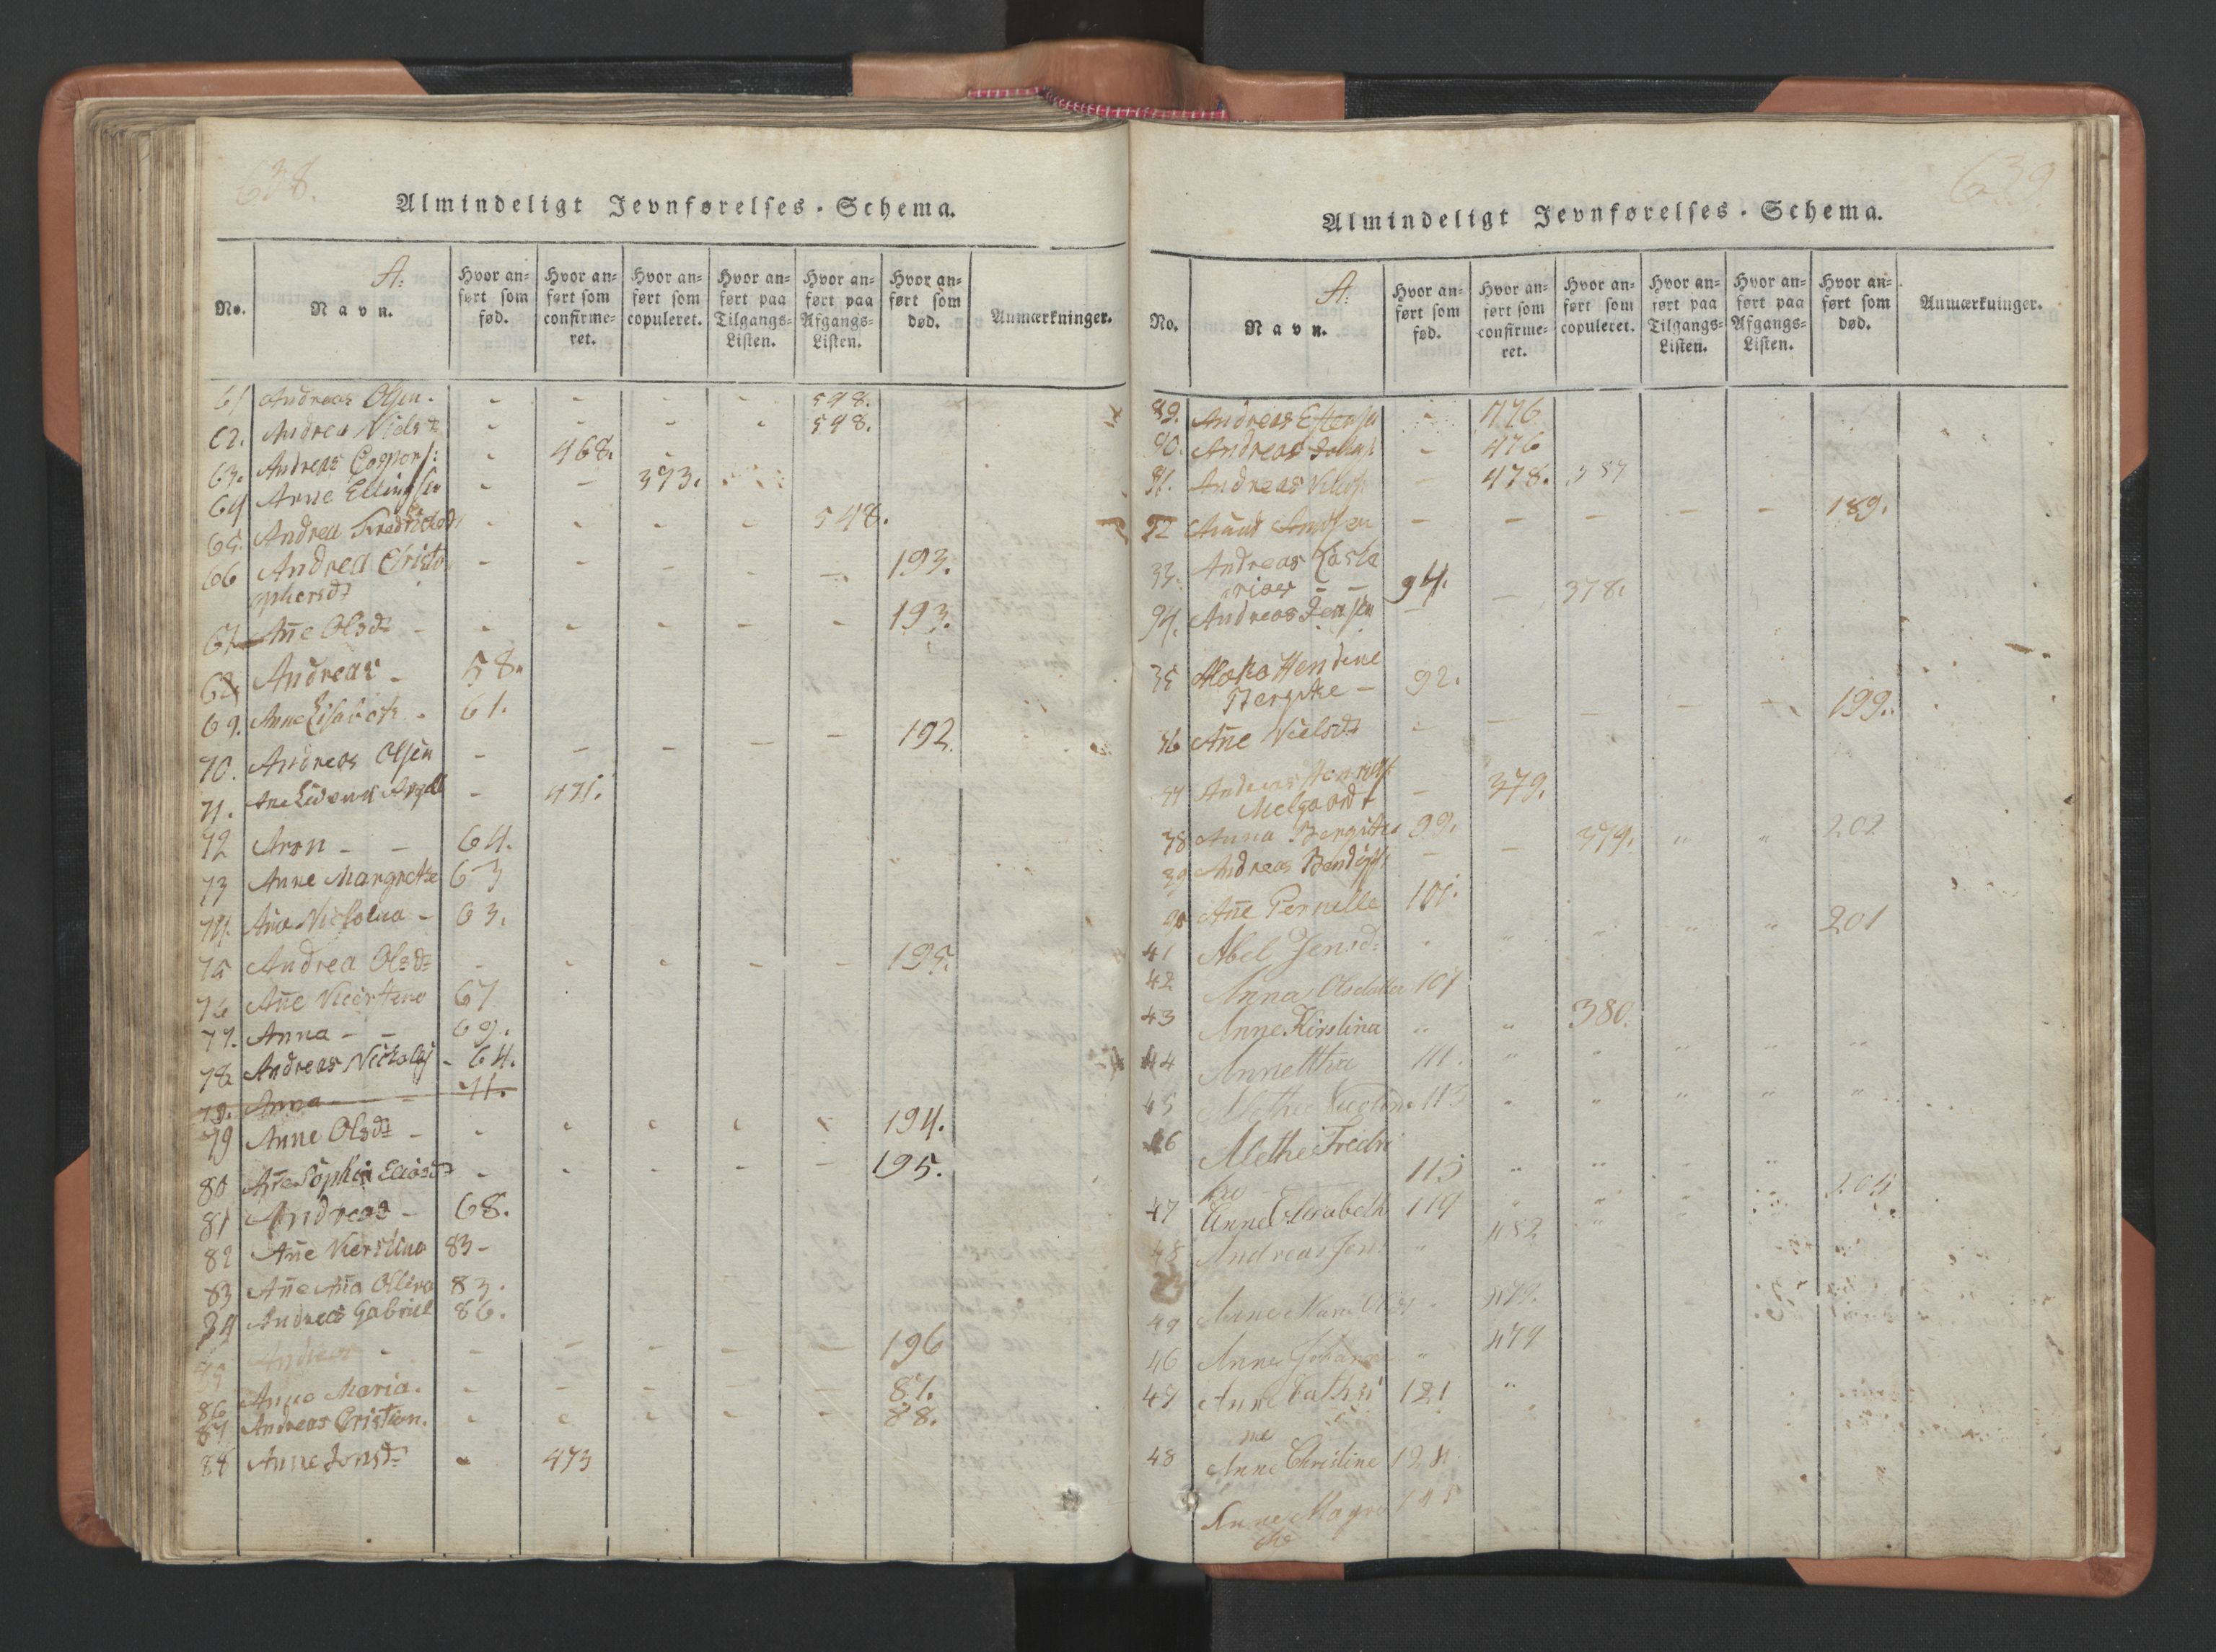 638.
Almindeligt Jevnførelses-Schema.
No.
A:
Navn.
Hvor anført som fød.
Hvor anført som confirmeret.
Hvor anført som copuleret.
Hvor anført paa Tilgangs-Listen.
Hvor anført paa Afgangs-Listen.
Hvor anført som død.
Anmærkninger.
61 Andreas Olsen. - - - - 598.
62. Andrea Nielsd: - - - - 598.
63. Andreas Caspers: - 468. -
64 Arne Ellingsen - - 373.
65. Andrea Fredrichsd: - - - - 548.
66 Andrea Cristo - - - - - 193.
phersd:
67 Añe Olsd: - - - - - - 193.
68 Andreas - 58.
69. Anne Lisabeth - 61.
70. Andreas Olsen - - - - - 192.
71. Ane - 471.
72 Aron - - 64.
73 Anne Margrethe 63
74. Ane Nicholina - 63.
75 Andrea Olsd: - - - - - 195.
76 Añe Kiersten 67
77. Anna - - 69.
78 Andreas Nicholaj - 64.
79. Anna - - 71.
79 Anne Olsd: - - - - - - 194.
80 Añe Sophia Eliasd: - - - - - 195.
81 Andreas - 68.
82 Añe Kierstina 83-
83 Añe Ma Oliva 83.
84 Andreas Gabriel 86.
85 Andreas - - - - - - 196
86 Anne Maria. - - - - - 87.
87 Andreas Cristian. - - - - - 88.
88 Anne Jonsd: - 473
639
Almindeligt Jevnførelses-Schema.
No.
A:
Navn.
Hvor anført som fød.
Hvor anført som confirmeret.
Hvor anført som copuleret.
Hvor anført paa Tilgangs-Listen.
Hvor anført paa Afgangs-Listen.
Hvor anført som død.
Anmærkninger.
89. Andreas Estensen - 476
90. Andreas - 476
91. Andreas Nilss: - 478. 387
92 - - - - - 189.
33. Andreas Zacha
rias - - 94.
94. Andreas Jensen - - 378.
35 Hendine
Bergithe - 92.
36 Añe Nielsd: - - - - - 199.
37 Andreas Henrichs:
Melgaardt - 379.
38 Anna Bergithe 99. 202
39 Andreas Bendixs: - - 379. " "
40 Añe Pernille 101.
41 Abel Jensd: " " " " " 201
42 Anna Olsdatter 107
43 Anne Kirstina " " 380.
44 Annettha 111. " " " " "
45 Alethe Nicoline 113 " " " " "
46 Alethe Fredri
ka 113 " " " "
47 Anne Elisabeth 119 " " " 204
48 Andreas Jens: " 482. "
49 Anne Maria Olsd: " 479.
46 Anne Johanna " 479
47 Anne Cathri 121 "
ne
48 Anne Christine 124.
Anne Magre 145
the